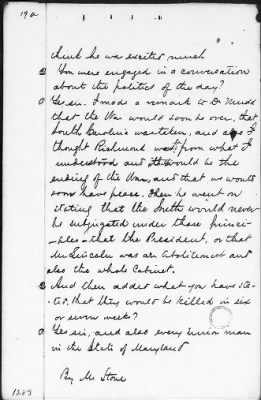 19a
think he was excited much
Q You were engaged in a conversation
about the politics of the day?
A Yes sir. I made a remark to Dr Mudd
that the War would soon be over, that
South Carolina was taken, and also I
thought Richmond was, from what I
understood and it would be the
ending of the War, and that we would
soon have peace. Then he went on
stating that the South would never
be subjugated under these princi-
ples - that the President, or that
Mr Lincoln was an Abolitionist and
also the whole Cabinet.
Q And then added what you have sta-
ted, that they would be killed in six
or seven weeks?
A Yes sir, and also every Union man
in the State of Maryland
By Mr Stone